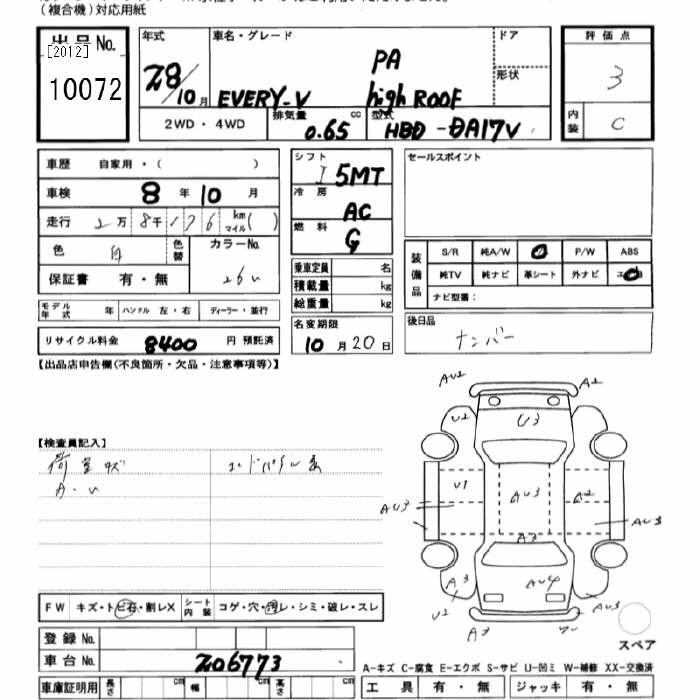 (複合機)対応用紙
出品 No.
[2012]
10072
年式 28/10月
車名・グレード
EVERY-V
PA
high ROOF
ドア
形状
評価点
3
内装
C
2WD・4WD
排気量 0.65 cc
型式 HBD-DA17V
車歴 自家用・( )
車検 8 年 10 月
走行 2万 8千 1 7 6 km マイル( )
色 白
色替
カラーNo. 26U
保証書 有・無
モデル年式 年 ハンドル 左・右 ディーラー・並行
リサイクル料金 8400 円 預託済
シフト 5MT
冷房 AC
燃料 G
乗車定員 名
積載量 kg
総重量 kg
名変期限
10 月 20 日
セールスポイント
装備品
S/R 純A/W P/W ABS
純TV 純ナビ 革シート 外ナビ
ナビ型番:
後日品
ナンバー
【出品店申告欄(不良箇所・欠品・注意事項等)】
【検査員記入】
荷室キズ
A・U
FW キズ・トビ石・割レX
シート内装 コゲ・穴・汚レ・シミ・破レ・スレ
登録 No.
車台 No. 206773
車庫証明用 長さ cm 幅 cm 高さ cm
AU2
A2
U2
U3
U1
AU3
A2
AU3
AU3
A3
A3
AU4
U2
A3
スペア
A-キズ C-腐食 E-エクボ S-サビ U-凹ミ W-補修 XX-交換済
工具 有・無 ジャッキ 有・無